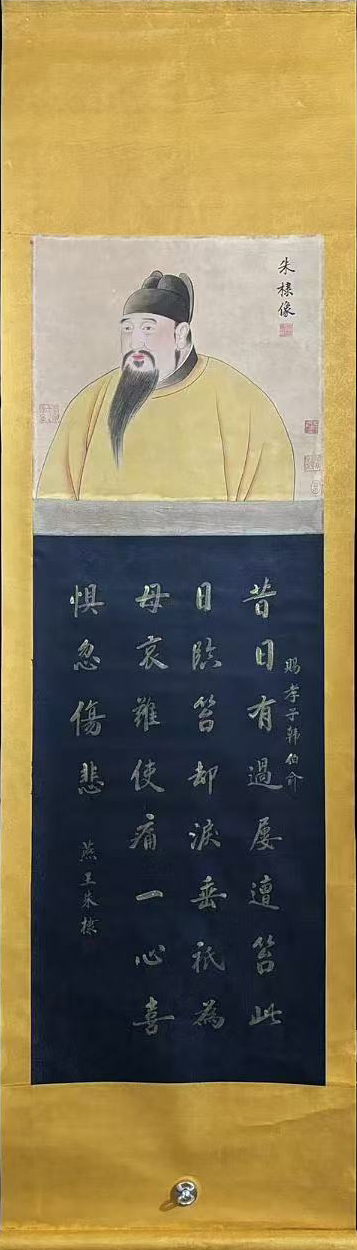 朱棣像
賜孝子韩伯俞
昔日有過屡遭笞此
日臨笞却淚垂祇為
母哀難使痛一心喜
惧忽傷悲
燕王朱棣